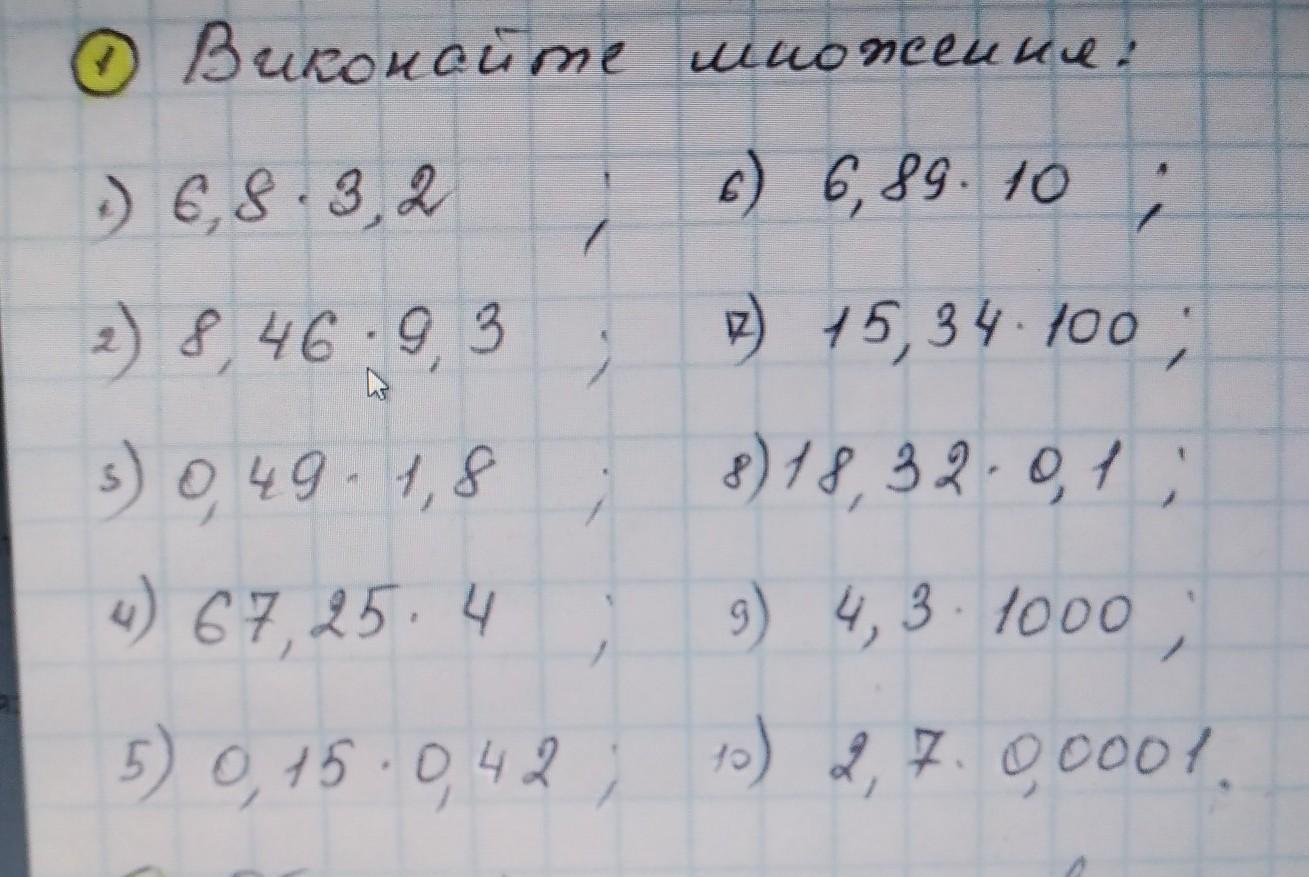 1 Виконайте множення:
1) 6,8 · 3,2 ; 6) 6,89 · 10 ;
2) 8,46 · 9,3 ; 7) 15,34 · 100 ;
3) 0,49 · 1,8 ; 8) 18,32 · 0,1 ;
4) 67,25 · 4 ; 9) 4,3 · 1000 ;
5) 0,15 · 0,42 ; 10) 2,7 · 0,0001.